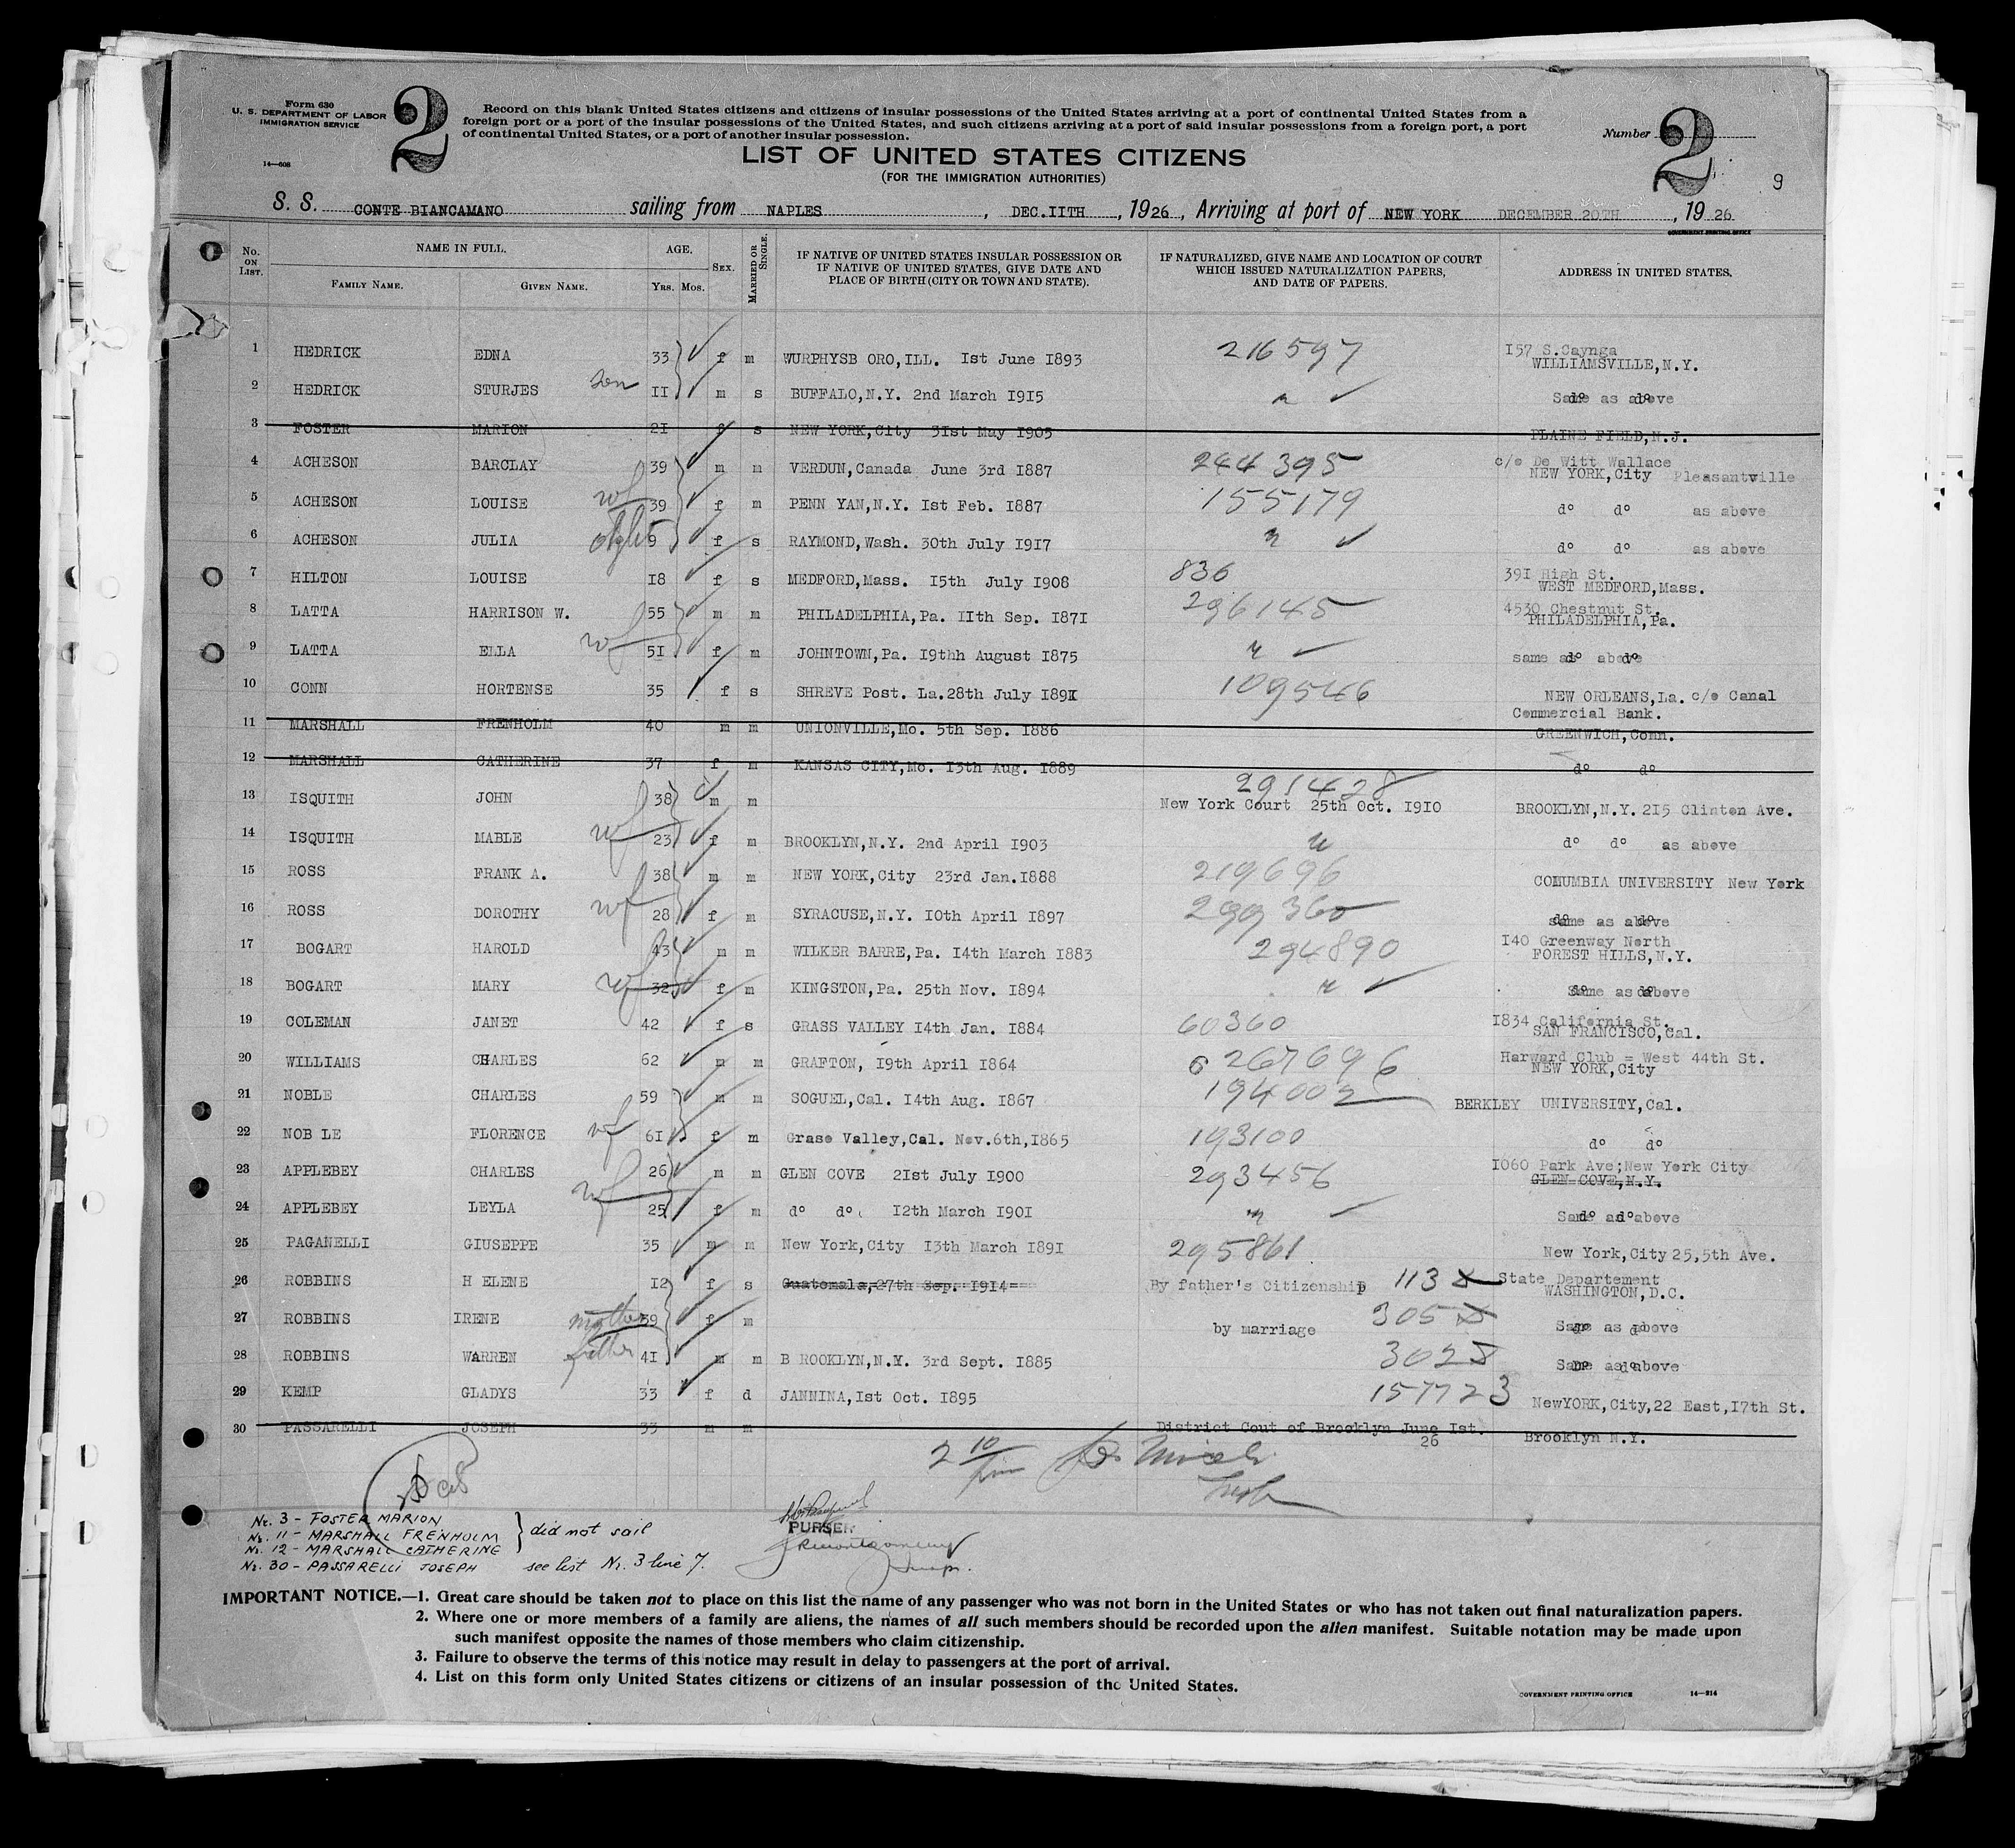 Form 630
U. S. DEPARTMENT OF LABOR
IMMIGRATION SERVICE
14—608
2
Record on this blank United States citizens and citizens of insular possessions of the United States arriving at a port of continental United States from a
foreign port or a port of the insular possessions of the United States, and such citizens arriving at a port of said insular possessions from a foreign port, a port
of continental United States, or a port of another insular possession.
Number 2
9
LIST OF UNITED STATES CITIZENS
(FOR THE IMMIGRATION AUTHORITIES)
S. S. CONTE BIANCAMANO sailing from NAPLES, DEC.IITH, 1926, Arriving at port of NEW YORK DECEMBER 20TH, 1926
GOVERNMENT PRINTING OFFICE
No. ON LIST. NAME IN FULL. FAMILY NAME. GIVEN NAME. AGE. YRS. MOS. SEX. MARRIED OR SINGLE. IF NATIVE OF UNITED STATES INSULAR POSSESSION OR IF NATIVE OF UNITED STATES, GIVE DATE AND PLACE OF BIRTH (CITY OR TOWN AND STATE). IF NATURALIZED, GIVE NAME AND LOCATION OF COURT WHICH ISSUED NATURALIZATION PAPERS, AND DATE OF PAPERS. ADDRESS IN UNITED STATES.
1 HEDRICK EDNA 33 f m WURPHYSB ORO,ILL. Ist June I893 216597 I57 S.Caynga WILLIAMSVILLE,N.Y.
2 HEDRICK STURJES son II m s BUFFALO,N.Y. 2nd March I9I5 " ✓ Same as above
3 FOSTER MARION 2I f s NEW YORK,City 3Ist May I905 PLAINE FIELD,N.J.
4 ACHESON BARCLAY 39 m m VERDUN,Canada June 3rd I887 244395 c/o De Witt Wallace NEW YORK,City Pleasantville
5 ACHESON LOUISE wf 39 f m PENN YAN,N.Y. Ist Feb. I887 155179 do do as above
6 ACHESON JULIA 9 f s RAYMOND,Wash. 30th July I9I7 " ✓ do do as above
7 HILTON LOUISE I8 f s MEDFORD,Mass. I5th July I908 836 39I High St. WEST MEDFORD,Mass.
8 LATTA HARRISON W. 55 m m PHILADELPHIA,Pa. IIth Sep. I87I 296145 4530 Chestnut St. PHILADELPHIA,Pa.
9 LATTA ELLA wf 5I f m JOHNTOWN,Pa. I9thh August I875 " ✓ same as above
10 CONN HORTENSE 35 f s SHREVE Post. La.28th July I89I 109546 NEW ORLEANS,La. c/o Canal Commercial Bank.
11 MARSHALL FRENHOLM 40 m m UNIONVILLE,Mo. 5th Sep. I886 GREENWICH,Conn.
12 MARSHALL CATHERINE 37 f m KANSAS CITY,Mo. I3th Aug. I889 do do
13 ISQUITH JOHN 38 m m 291428 New York Court 25th Oct. I9I0 BROOKLYN,N.Y. 2I5 Clinton Ave.
14 ISQUITH MABLE wf 23 f m BROOKLYN,N.Y. 2nd April I903 " do do as above
15 ROSS FRANK A. 38 m m NEW YORK,City 23rd Jan.I888 219696 COLUMBIA UNIVERSITY New York
16 ROSS DOROTHY wf 28 f m SYRACUSE,N.Y. I0th April I897 299360 same as above
17 BOGART HAROLD 43 m m WILKER BARRE,Pa. I4th March I883 294890 I40 Greenway North FOREST HILLS,N.Y.
18 BOGART MARY wf 32 f m KINGSTON,Pa. 25th Nov. I894 " ✓ Same as above
19 COLEMAN JANET 42 f s GRASS VALLEY I4th Jan. I884 60360 I834 California St. SAN FRANCISCO,Cal.
20 WILLIAMS CHARLES 62 m m GRAFTON, I9th April I864 6 267696 Harward Club = West 44th St. NEW YORK,City
21 NOBLE CHARLES 59 m m SOGUEL,Cal. I4th Aug. I867 194002 BERKLEY UNIVERSITY,Cal.
22 NOB LE FLORENCE wf 6I f m Grase Valley,Cal. Nov.6th,I865 193100 do do
23 APPLEBEY CHARLES 26 m m GLEN COVE 2Ist July I900 293456 I060 Park Ave;New York City GLEN COVE,N.Y.
24 APPLEBEY LEYLA wf 25 f m do do I2th March I90I " Same as above
25 PAGANELLI GIUSEPPE 35 m m New York,City I3th March I89I 295861 New York,City 25,5th Ave.
26 ROBBINS H ELENE I2 f s Guatemala,27th Sep. I9I4== By father's Citizenship 1138 State Departement WASHINGTON,D.C.
27 ROBBINS IRENE mother 39 f m by marriage 3058 Same as above
28 ROBBINS WARREN father 4I m m B ROOKLYN,N.Y. 3rd Sept. I885 3028 Same as above
29 KEMP GLADYS 33 f d JANNINA,Ist Oct. I895 157723 NewYORK,City,22 East,I7th St.
30 PASSARELLI JOSEPH 33 m m District Cout of Brooklyn June Ist. 26 Brooklyn N.Y.
2 10
Nr. 3 - FOSTER MARION
Nr. 11 - MARSHALL FRENHOLM } did not sail
Nr. 12 - MARSHALL CATHERINE
Nr. 30 - PASSARELLI JOSEPH see list Nr. 3 line 7.
PURSER
IMPORTANT NOTICE.—1. Great care should be taken not to place on this list the name of any passenger who was not born in the United States or who has not taken out final naturalization papers.
2. Where one or more members of a family are aliens, the names of all such members should be recorded upon the alien manifest. Suitable notation may be made upon
such manifest opposite the names of those members who claim citizenship.
3. Failure to observe the terms of this notice may result in delay to passengers at the port of arrival.
4. List on this form only United States citizens or citizens of an insular possession of the United States.
GOVERNMENT PRINTING OFFICE 14—214